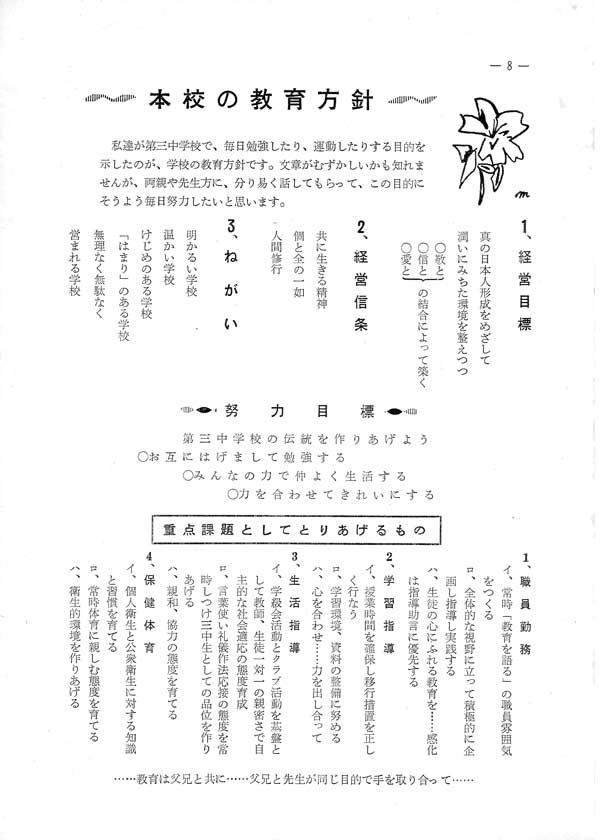 — 8 —
本校の教育方針
私達が第三中学校で、毎日勉強したり、運動したりする目的を
示したのが、学校の教育方針です。文章がむずかしいかも知れま
せんが、両親や先生方に、分り易く話してもらって、この目的に
そうよう毎日努力したいと思います。
m
1、経営目標
真の日本人形成をめざして
潤いにみちた環境を整えつつ
○敬と
○信と
○愛と
の結合によって築く
2、経営信条
共に生きる精神
個と全の一如
人間修行
3、ねがい
明かるい学校
温かい学校
けじめのある学校
「はまり」のある学校
無理なく無駄なく
営まれる学校
努力目標
第三中学校の伝統を作りあげよう
○お互にはげまして勉強する
○みんなの力で仲よく生活する
○力を合わせてきれいにする
重点課題としてとりあげるもの
1、職員勤務
イ、常時「教育を語る」の職員雰囲気
をつくる
ロ、全体的な視野に立って積極的に企
画し指導し実践する
ハ、生徒の心にふれる教育を……感化
は指導助言に優先する
2、学習指導
イ、授業時間を確保し移行措置を正し
く行なう
ロ、学習環境、資料の整備に努める
ハ、心を合わせ……力を出し合って
3、生活指導
イ、学級会活動とクラブ活動を基盤と
して教師、生徒一対一の親密さで自
主的な社会適応の態度育成
ロ、言葉使い礼儀作法応接の態度を常
時しつけ三中生としての品位を作り
あげる
ハ、親和、協力の態度を育てる
4、保健体育
イ、個人衛生と公衆衛生に対する知識
と習慣を育てる
ロ、常時体育に親しむ態度を育てる
ハ、衛生的環境を作りあげる
……教育は父兄と共に……父兄と先生が同じ目的で手を取り合って……